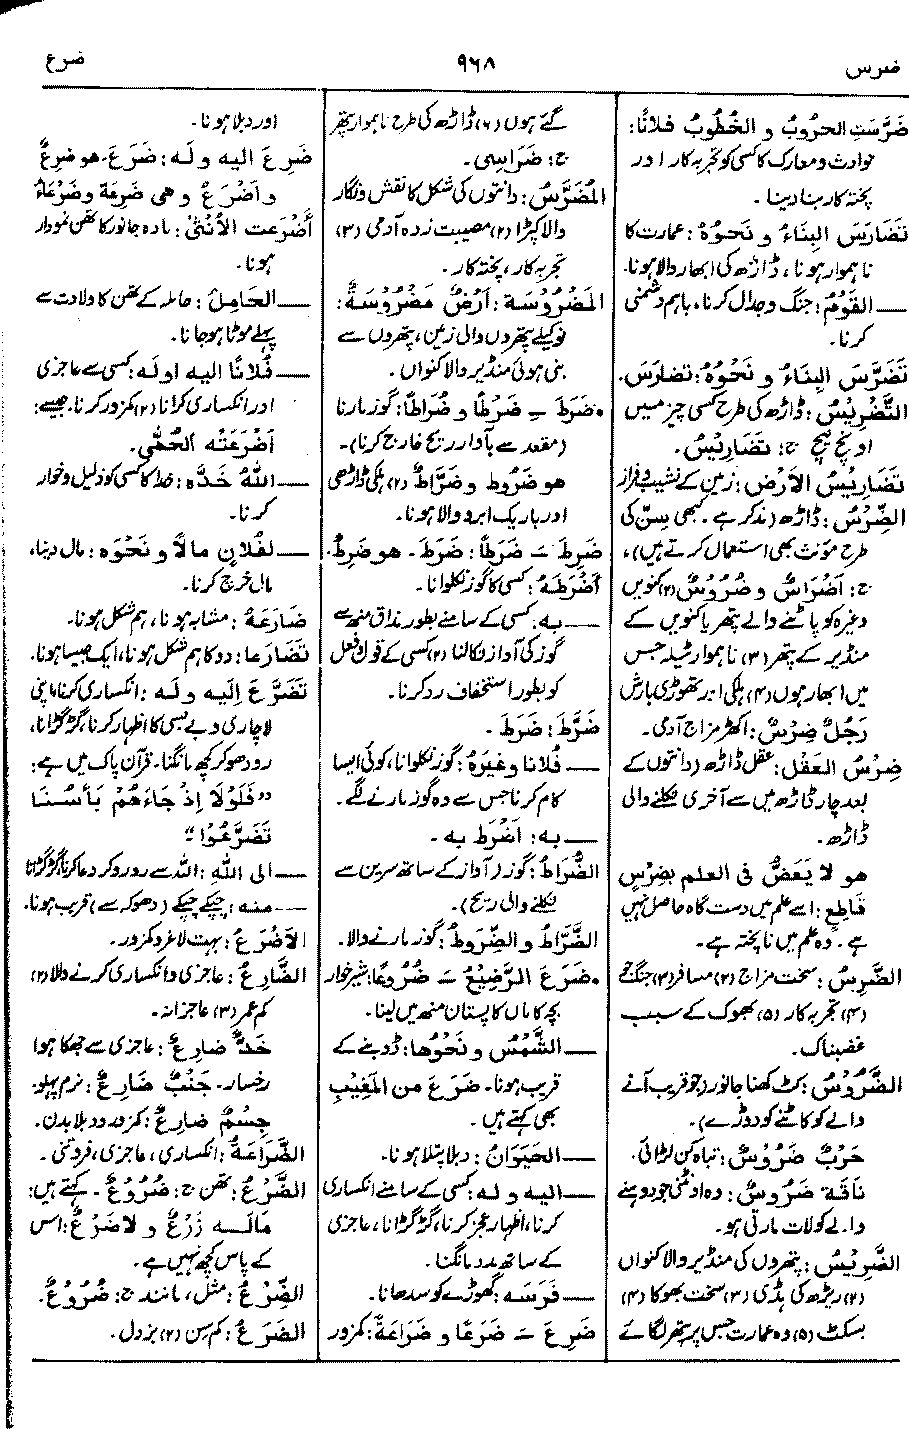 ضرس
۹۶۸
ضرع
ضَرَّسَتِ الحروبُ و الخُطُوبُ فلانًا:
حوادث و معارک کا کسی کو تجربہ کار اور
پختہ کار بنا دینا۔
تَضَارَسَ البِنَاءُ و نَحْوُهُ: عمارت کا
ناہموار ہونا، ڈاڑھ کی ابھار والا ہونا۔
ـــ القَوْمُ: جنگ و جدال کرنا، باہم دشمنی
کرنا۔
تَضَرَّسَ البِنَاءُ و نَحْوُهُ: تضارَسَ.
التَّضْرِيْسُ: ڈاڑھ کی طرح کسی چیز میں
اونچ نیچ ج: تَضَارِيْسُ.
تَضَارِيْسُ الأرْضِ: زمین کے نشیب و فراز
الضِّرْسُ: ڈاڑھ (مذکر ہے۔ کبھی سِنّ کی
طرح مؤنث بھی استعمال کرتے ہیں)،
ج: أضْرَاسٌ و ضُرُوْسٌ (۲) کنویں
وغیرہ کو پاٹنے والے پتھر یا کنویں کے
منڈیر کے پتھر (۳) ناہموار ٹیلہ جس
میں ابھار ہوں (۴) ہلکی ابر تھوڑی بارش
رَجُلٌ ضِرْسٌ: اکھڑ مزاج آدمی۔
ضِرْسُ العَقْلِ: عقل ڈاڑھ (دانتوں کے
بعد چار ڈاڑھ میں سے آخری نکلنے والی
ڈاڑھ۔
هو لا يَعَضُّ فى العلم بضِرْسٍ
قَاطِعٍ: اسے علم میں دست گاہ حاصل نہیں
ہے۔ وہ علم میں ناپختہ ہے۔
الضَّرِسُ: سخت مزاج (۲) مسافر (۳) جنگجو
(۴) تجربہ کار (۵) بھوک کے سبب
غضبناک۔
الضَّرُوْسُ: کٹ کھنا جانور (جو قریب آنے
والے کو کاٹنے کو دوڑے)۔
حَرْبٌ ضَرُوْسٌ: تباہ کن لڑائی۔
نَاقَةٌ ضَرُوْسٌ: وہ اونٹنی جو دوہنے
والے کو لات مارتی ہو۔
الضَّرِيْسُ: پتھروں کی منڈیر والا کنواں
(۲) ریڑھ کی ہڈی (۳) سخت بھوکا (۴)
بسکٹ (۵) وہ عمارت جس پر پتھر لگائے
گئے ہوں (۶) ڈاڑھ کی طرح ناہموار پتھر
ج: ضَرَاسِى۔
المُضَرَّسُ: دانتوں کی شکل کا نقش و نگار
والا کپڑا (۲) مصیبت زدہ آدمی (۳)
تجربہ کار، پختہ کار۔
المَضْرُوْسَة: أرْضٌ مَضْرُوْسَةٌ:
نوکیلے پتھروں والی زمین، پتھروں سے
بنی ہوئی منڈیر والا کنواں۔
• ضَرَطَ ـِ ضَرْطًا و ضُرَاطًا: گوز مارنا
(مقعد سے بآواز ریح خارج کرنا)۔
هو ضَرُوط و ضَرَّاطٌ (۲) ہلکی ڈاڑھی
اور باریک ابرو والا ہونا۔
ضَرِطَ ـَ ضَرَطًا: ضَرَطَ۔ هو ضَرِطٌ.
أضْرَطَهُ: کسی کا گوز نکلوانا۔
ـــ به: کسی کے سامنے بطور مذاق منہ سے
گوز کی آواز نکالنا (۲) کسی کے قول و فعل
کو بطور استخفاف رد کرنا۔
ضَرَّطَ: ضَرَطَ۔
ـــ فُلانًا وغيرَهُ: گوز نکلوانا، کوئی ایسا
کام کرنا جس سے وہ گوز مارنے لگے۔
ـــ به: أضْرَط به۔
الضُّرَاطُ: گوز (آواز کے ساتھ سرین سے
نکلنے والی ریح)۔
الضَّرَّاطُ والضَّروطُ: گوز مارنے والا۔
• ضَرَعَ الرَّضِيْعُ ـَ ضُرُوعًا: شیر خوار
بچہ کا ماں کا پستان منہ میں لینا۔
ـــ الشَّمْسُ و نَحْوُها: ڈوبنے کے
قریب ہونا۔ ضَرَعَ من المَغِيْبِ
بھی کہتے ہیں۔
ـــ الحَيَوَانُ: دبلا پتلا ہونا۔
ـــ اليه و له: کسی کے سامنے انکساری
کرنا، اظہار عجز کرنا، گڑگڑانا، عاجزی
کے ساتھ مدد مانگنا۔
ـــ فَرَسَه: گھوڑے کو سدھانا۔
ضَرِعَ ـَ ضَرَعًا و ضَرَاعَةً: کمزور
اور دبلا ہونا۔
ضَرِعَ اليه و له: ضَرَعَ۔ هو ضَرِعٌ
و أضْرَعُ و هى ضَرِعَة و ضَرْعَاءُ
أضْرَعَت الأُنْثىٰ: مادہ جانور کا تھن نمودار
ہونا۔
ـــ الحَامِلُ: حاملہ کے تھن کا ولادت سے
پہلے موٹا ہو جانا۔
ـــ فُلانًا اليه او له: کسی سے عاجزی
اور انکساری کرانا (۲) کمزور کرنا۔ جیسے:
أضْرَعَتْه الحُمّٰى.
ـــ اللهُ خَدَّه: خدا کا کسی کو ذلیل و خوار
کرنا۔
ـــ لفُلانٍ مالًا و نَحْوَه: مال دینا،
مال خرچ کرنا۔
ضَارَعَهُ: مشابہ ہونا، ہم شکل ہونا۔
تَضَارَعا: دو کا ہم شکل ہونا، ایک جیسا ہونا۔
تَضَرَّعَ إليه و له: انکساری کرنا، اپنی
لاچاری و بے بسی کا اظہار کرنا، گڑگڑانا،
رو دھو کر کچھ مانگنا۔ قرآن پاک میں ہے:
"فَلَوْلَا إِذْ جَاءَهُمْ بَأْسُنَا
تَضَرَّعُوْا"
ـــ الى اللهِ: اللہ سے رو رو کر دعا کرنا، گڑگڑانا
ـــ منه: چپکے چپکے (دھوکہ سے) قریب ہونا۔
الأضْرَعُ: بہت لاغر و کمزور۔
الضَّارِعُ: عاجزی و انکساری کرنے والا (۲)
کم عمر (۳) عاجزانہ۔
خَدٌّ ضارِعٌ: عاجزی سے جھکا ہوا
رخسار۔ جَنْبٌ ضَارِعٌ: نرم پہلو۔
جِسْمٌ ضارِعٌ: کمزور و دبلا بدن۔
الضَّرَاعَةُ: انکساری، عاجزی، فروتنی۔
الضَّرْعُ: تھن ج: ضُرُوْعٌ۔ کہتے ہیں:
مَالَـه زَرْعٌ و لاضَرْعٌ: اس
کے پاس کچھ نہیں ہے۔
الضِّرْعُ: مثل، مانند ج: ضُرُوْعٌ.
الضَرَعُ: کم سن (۲) بزدل۔